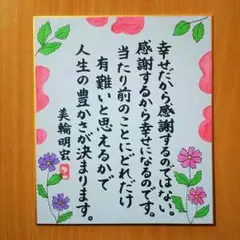 幸せだから感謝するのではない。
感謝するから幸せになるのです。
当たり前のことにどれだけ
有難いと思えるかで
人生の豊かさが決まります。
美輪明宏